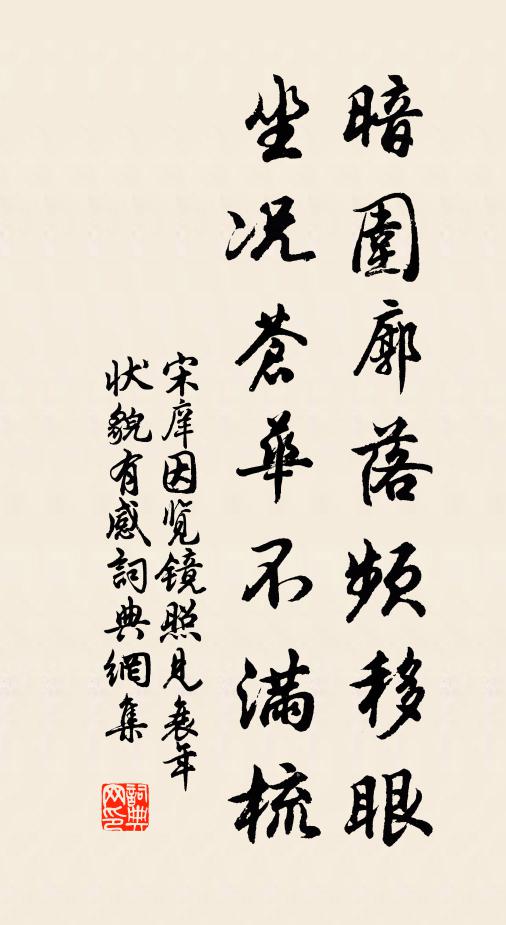 暗圍廓落頻移眼
坐況蒼華不滿梳
宋庠因览镜照見衰年
状貌有感詞典網集
詞典網印